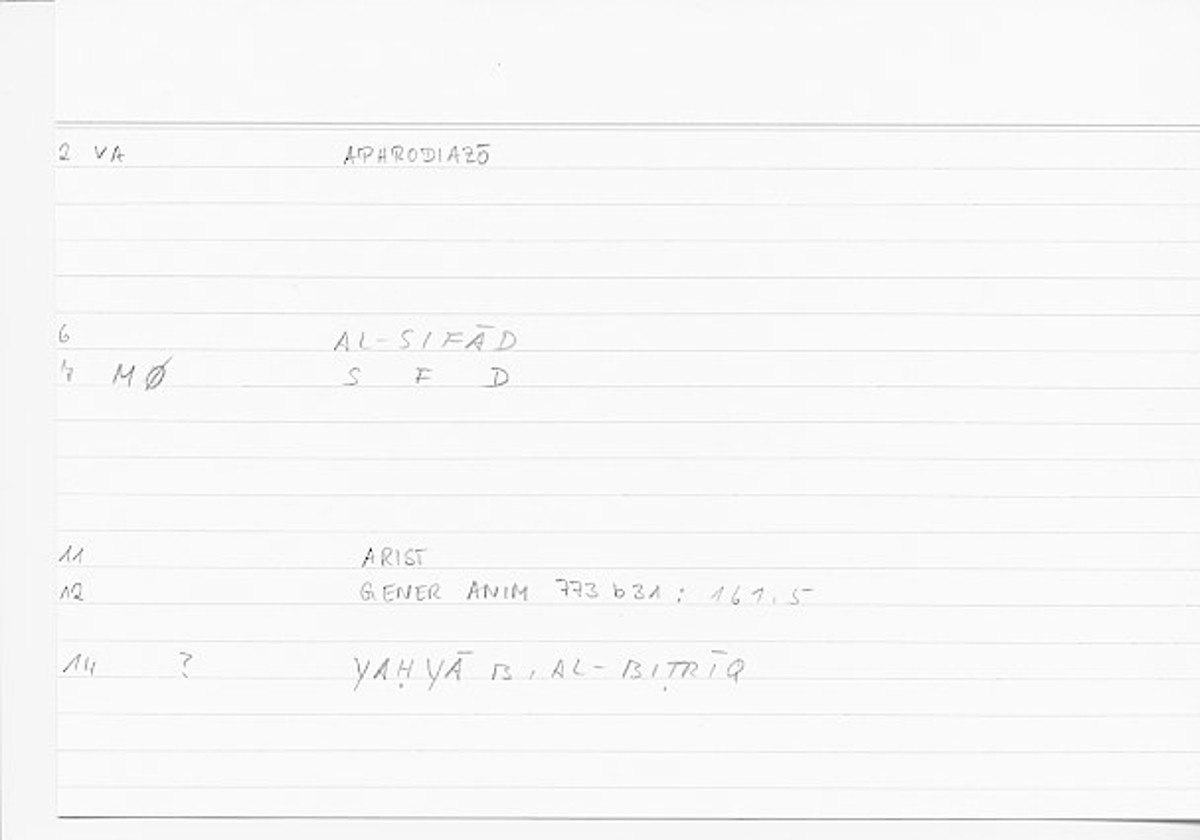 2 VA APHRODIAZŌ
6 AL-SIFĀD
7 MØ S F D
11 ARIST
12 GENER ANIM 773 b 31 : 161.5
14 ? YAḤYĀ B. AL-BIṬRĪQ